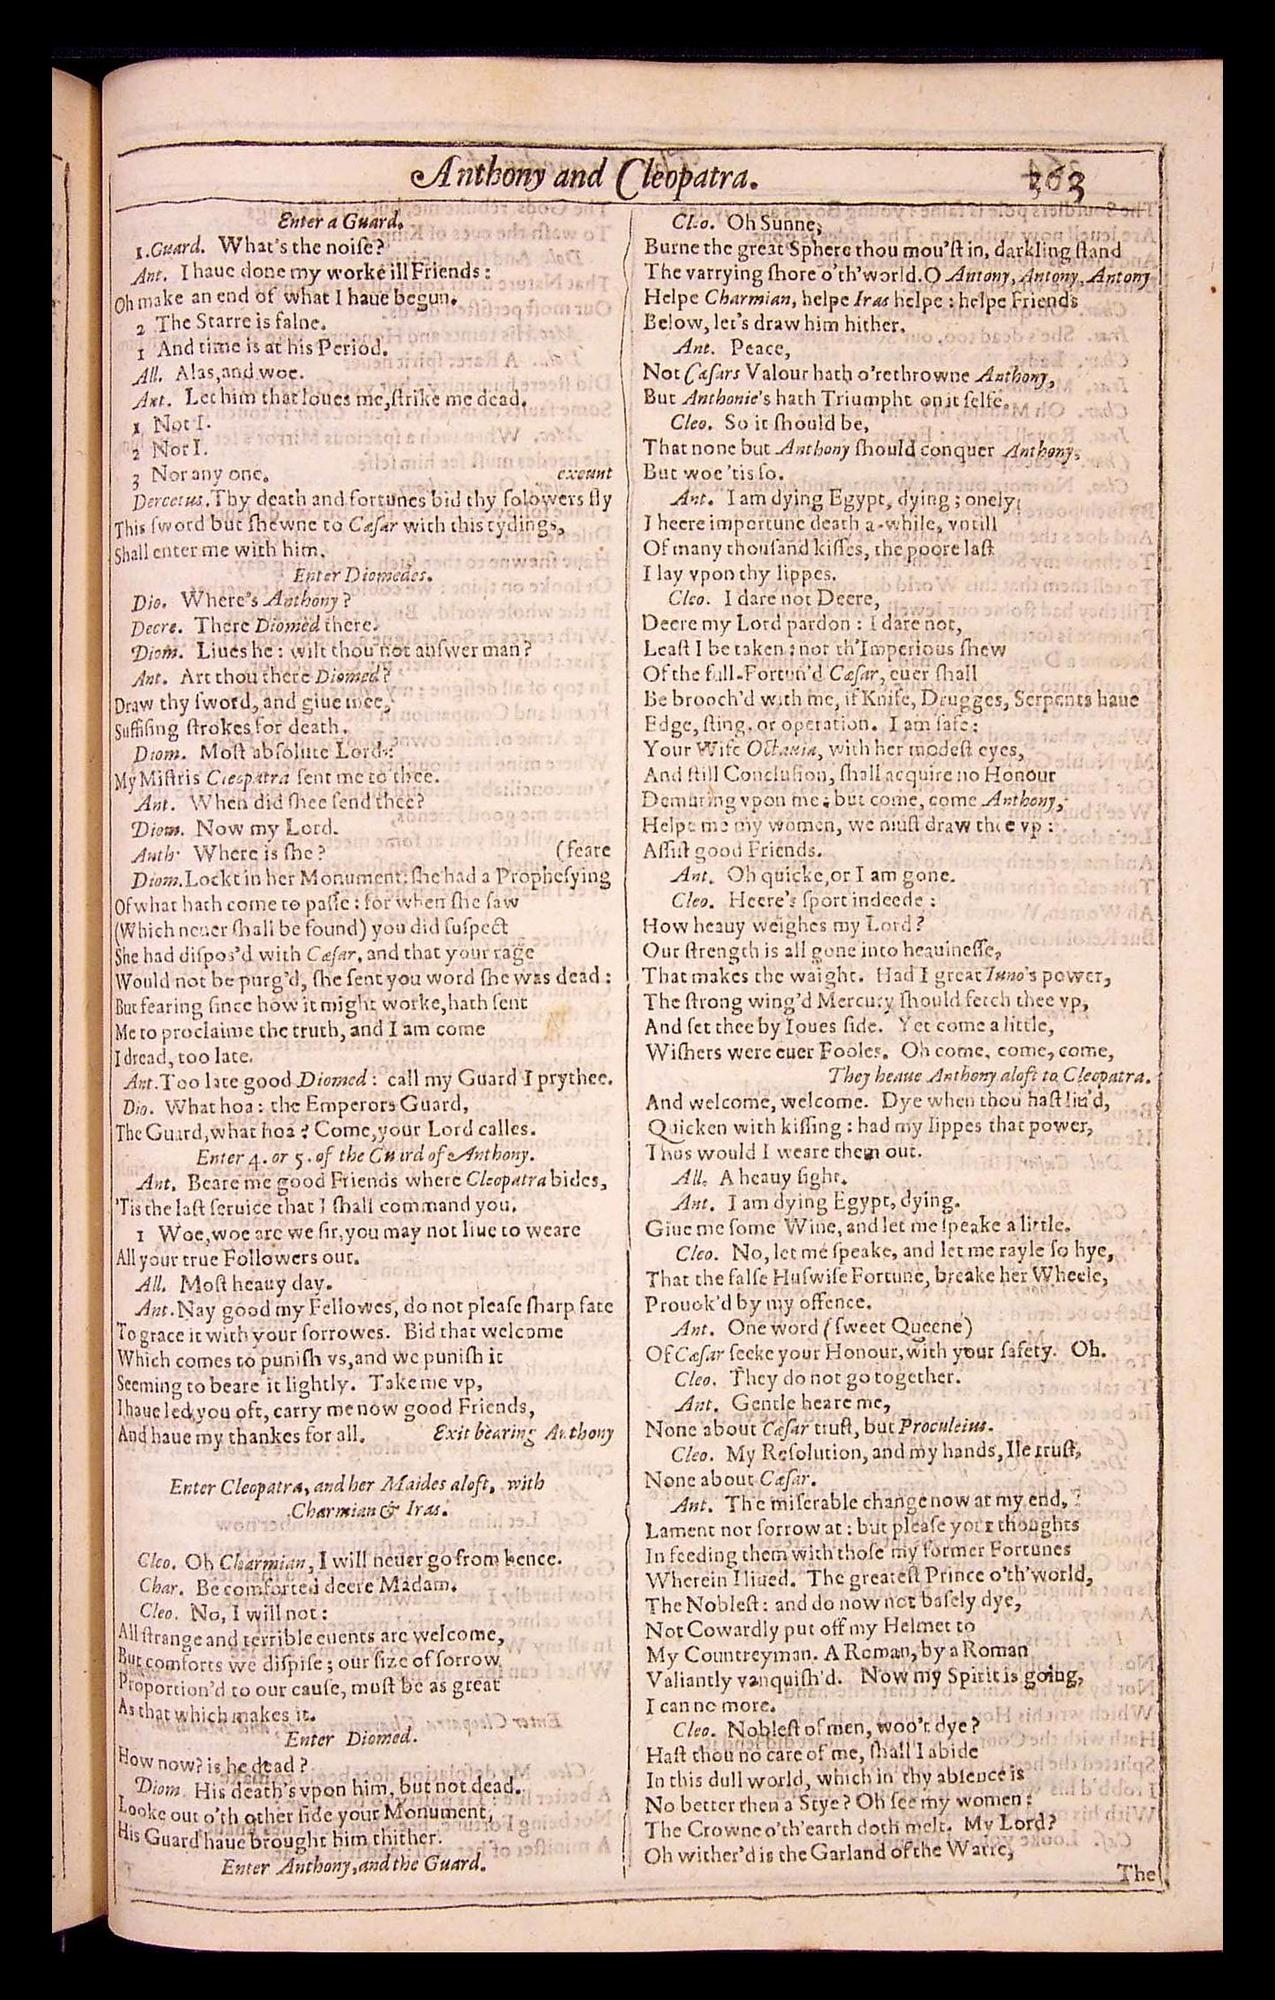 Anthony and Cleopatra. 263
Enter a Guard.
1.Guard. What's the noise?
Ant. I haue done my worke ill Friends:
Oh make an end of what I haue begun.
2 The Starre is falne.
1 And time is at his Period.
All. Alas, and woe.
Ant. Let him that loues me, strike me dead.
1 Not I.
2 Nor I.
3 Nor any one. exeunt
Dercetus. Thy death and fortunes bid thy folowers fly
This sword but shewne to Cæsar with this tydings,
Shall enter me with him.
Enter Diomedes.
Dio. Where's Anthony?
Decre. There Diomed there.
Diom. Liues he: wilt thou not answer man?
Ant. Art thou there Diomed?
Draw thy sword, and giue mee,
Suffising strokes for death.
Diom. Most absolute Lord:
My Mistris Cleopatra sent me to thee.
Ant. When did shee send thee?
Diom. Now my Lord.
Anth. Where is she? (feare
Diom. Lockt in her Monument: she had a Prophesying
Of what hath come to passe: for when she saw
(Which neuer shall be found) you did suspect
She had dispos'd with Cæsar, and that your rage
Would not be purg'd, she sent you word she was dead:
But fearing since how it might worke, hath sent
Me to proclaime the truth, and I am come
I dread, too late.
Ant. Too late good Diomed: call my Guard I prythee.
Dio. What hoa: the Emperors Guard,
The Guard, what hoa? Come, your Lord calles.
Enter 4. or 5. of the Guard of Anthony.
Ant. Beare me good Friends where Cleopatra bides,
'Tis the last seruice that I shall command you.
1 Woe, woe are we sir, you may not liue to weare
All your true Followers out.
All. Most heauy day.
Ant. Nay good my Fellowes, do not please sharp fate
To grace it with your sorrowes. Bid that welcome
Which comes to punish vs, and we punish it
Seeming to beare it lightly. Take me vp,
I haue led you oft, carry me now good Friends,
And haue my thankes for all. Exit bearing Anthony
Enter Cleopatra, and her Maides aloft, with
Charmian & Iras.
Cleo. Oh Charmian, I will neuer go from hence.
Char. Be comforted deere Madam.
Cleo. No, I will not:
All strange and terrible euents are welcome,
But comforts we dispise; our size of sorrow
Proportion'd to our cause, must be as great
As that which makes it.
Enter Diomed.
How now? is he dead?
Diom. His death's vpon him, but not dead.
Looke out o'th other side your Monument,
His Guard haue brought him thither.
Enter Anthony, and the Guard.
Cleo. Oh Sunne,
Burne the great Sphere thou mou'st in, darkling stand
The varrying shore o'th'world. O Antony, Antony, Antony
Helpe Charmian, helpe Iras helpe: helpe Friends
Below, let's draw him hither.
Ant. Peace,
Not Cæsars Valour hath o'rethrowne Anthony,
But Anthonie's hath Triumpht on it selfe.
Cleo. So it should be,
That none but Anthony should conquer Anthony,
But woe 'tis so.
Ant. I am dying Egypt, dying; onely
I heere importune death a-while, vntill
Of many thousand kisses, the poore last
I lay vpon thy lippes.
Cleo. I dare not Deere,
Deere my Lord pardon: I dare not,
Least I be taken: not th'Imperious shew
Of the full-Fortun'd Cæsar, euer shall
Be brooch'd with me, if Knife, Drugges, Serpents haue
Edge, sting, or operation. I am safe:
Your Wife Octauia, with her modest eyes,
And still Conclusion, shall acquire no Honour
Demuring vpon me: but come, come Anthony,
Helpe me my women, we must draw thee vp:
Assist good Friends.
Ant. Oh quicke, or I am gone.
Cleo. Heere's sport indeede:
How heauy weighes my Lord?
Our strength is all gone into heauinesse,
That makes the waight. Had I great Iuno's power,
The strong wing'd Mercury should fetch thee vp,
And set thee by Ioues side. Yet come a little,
Wishers were euer Fooles. Oh come, come, come,
They heaue Anthony aloft to Cleopatra.
And welcome, welcome. Dye when thou hast liu'd,
Quicken with kissing: had my lippes that power,
Thus would I weare them out.
All. A heauy sight.
Ant. I am dying Egypt, dying.
Giue me some Wine, and let me speake a little.
Cleo. No, let me speake, and let me rayle so hye,
That the false Huswife Fortune, breake her Wheele,
Prouok'd by my offence.
Ant. One word (sweet Queene)
Of Cæsar seeke your Honour, with your safety. Oh.
Cleo. They do not go together.
Ant. Gentle heare me,
None about Cæsar trust, but Proculeius.
Cleo. My Resolution, and my hands, Ile trust,
None about Cæsar.
Ant. The miserable change now at my end,
Lament nor sorrow at: but please your thoughts
In feeding them with those my former Fortunes
Wherein I liued. The greatest Prince o'th'world,
The Noblest: and do now not basely dye,
Not Cowardly put off my Helmet to
My Countreyman. A Roman, by a Roman
Valiantly vanquish'd. Now my Spirit is going,
I can no more.
Cleo. Noblest of men, woo't dye?
Hast thou no care of me, shall I abide
In this dull world, which in thy absence is
No better then a Stye? Oh see my women:
The Crowne o'th'earth doth melt. My Lord?
Oh wither'd is the Garland of the Warre,
The